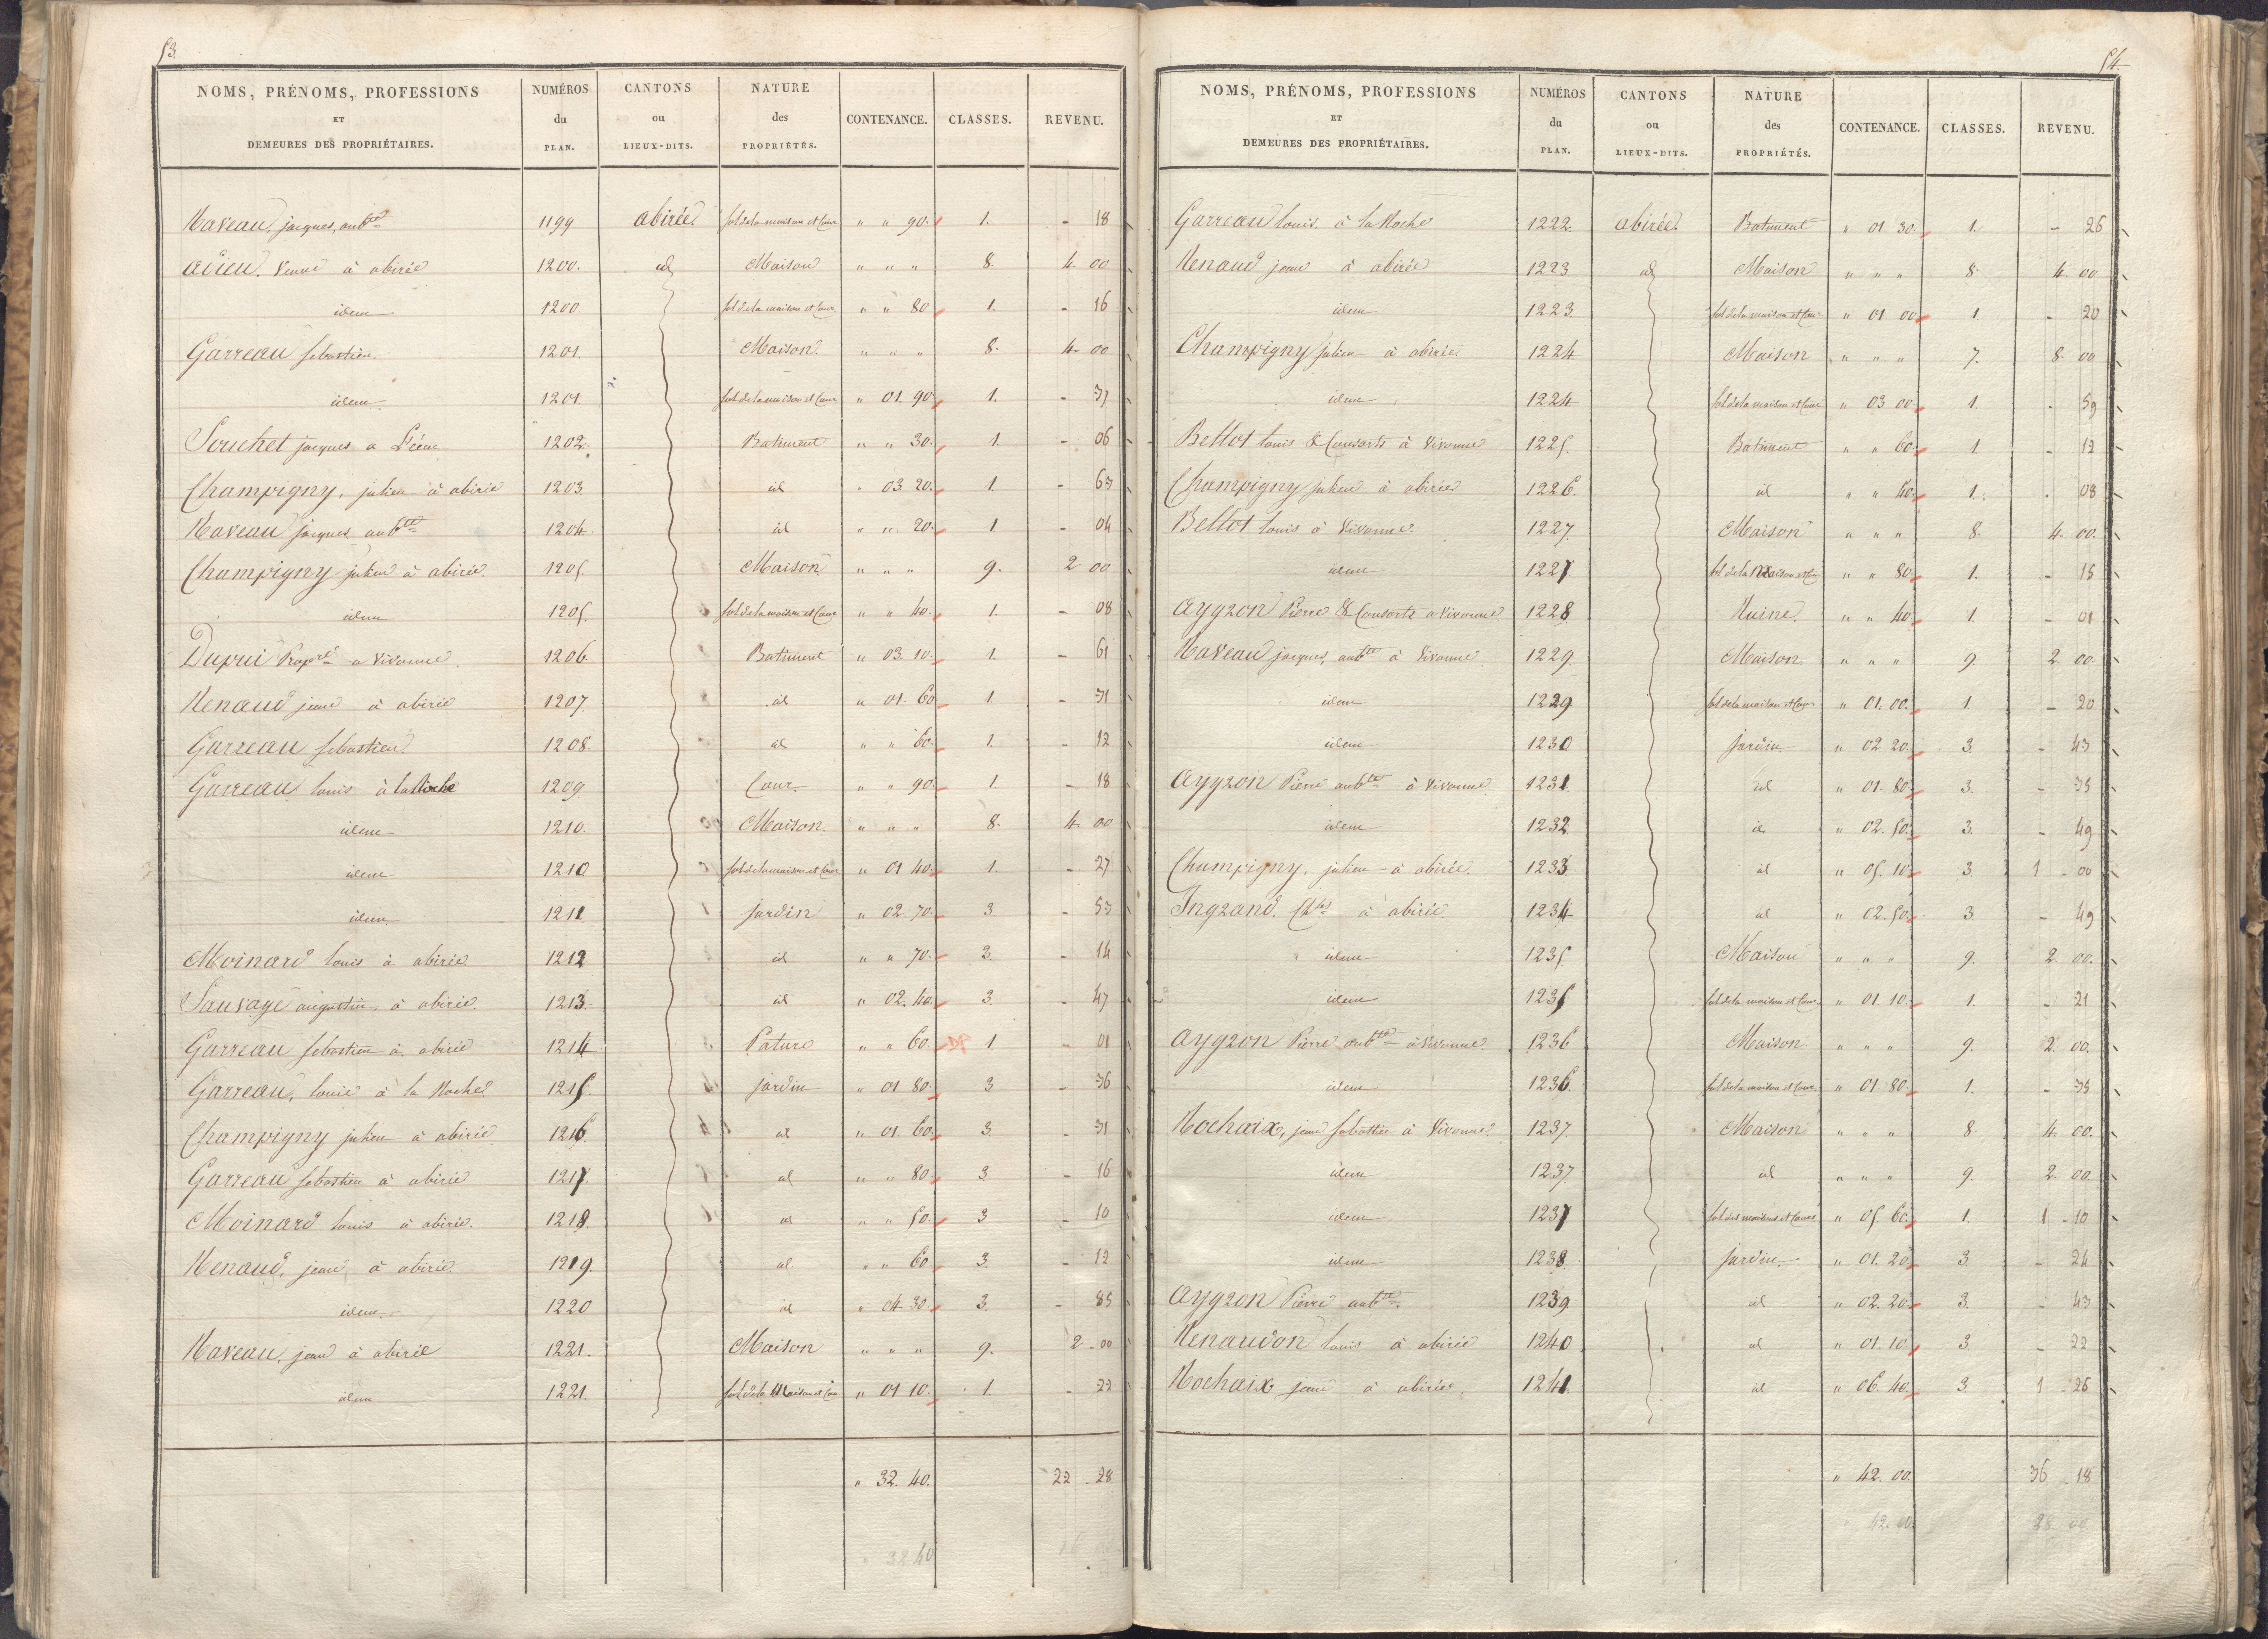 53.
NOMS, PRÉNOMS, PROFESSIONS ET DEMEURES DES PROPRIÉTAIRES. | NUMÉROS du PLAN. | CANTONS ou LIEUX-DITS. | NATURE des PROPRIÉTÉS. | CONTENANCE. | CLASSES. | REVENU.
Naveau, jacques, aubte | 1199 | abirée | sol de la maison et Cour | " " 90. | 1. | - 18
Veuve à abirée | 1200. | id | Maison | " " " | 8. | 4. 00
idem | 1200. | sol de la maison et Cour | " " 80 | 1. | - 16
Garreau sebastien. | 1201. | Maison. | " " " | 8. | 4. 00
idem | 1201. | sol de la maison et Cour | " 01. 90. | 1. | - 37
Souchet jacques a | 1202. | Batiment | " " 30. | 1. | - 06
Champigny, julien à abirée | 1203 | id | " 03. 20. | 1. | - 63
Naveau jacques aubte | 1204. | id | " " 20. | 1 | - 04
Champigny julien à abirée. | 1205. | Maison | " " " | 9. | 2 00
idem | 1205. | sol de la maison et Cour | " " 40. | 1. | - 08
Dupui Propre a Vivonne | 1206. | Batiment | " 03. 10. | 1. | - 61
Renaud jean à abirée | 1207. | id | " 01. 60 | 1. | - 31
Garreau sebastien | 1208. | id | " " 60. | 1. | - 12
Garreau louis à la Roche | 1209 | Cour. | " " 90. | 1. | - 18
idem | 1210. | Maison. | " " " | 8. | 4. 00
idem | 1210 | sol de la maison et Cour | " 01 40. | 1. | - 27
idem | 1211. | jardin | " 02. 70. | 3 | - 53
Moinard louis à abirée | 1212 | id | " " 70. | 3. | - 14
Sauvage augustin, à abirée. | 1213. | id | " 02. 40. | 3. | - 47
Garreau sebastien à abirée | 1214 | Pature | " " 60. | 1. | - 01
Garreau, louis à la Roche | 1215. | jardin | " 01 80. | 3 | - 36
Champigny julien à abirée | 1216. | id | " 01. 60. | 3. | - 31
Garreau sebastien à abirée | 1217. | id | " " 80. | 3 | - 16
Moinard louis à abirée. | 1218. | id | " " 50. | 3 | - 10
Renaud, jean, à abirée. | 1219. | id | " " 60 | 3. | - 12
idem. | 1220 | id | " 04. 30. | 3. | - 85
Naveau, jean à abirée | 1221. | Maison | " " " | 9. | 2 - 00
idem | 1221. | sol de la Maison et Cour | " 01 10. | 1. | - 22
" 32. 40. | 22 - 28
32 40
54.
NOMS, PRÉNOMS, PROFESSIONS ET DEMEURES DES PROPRIÉTAIRES. | NUMÉROS du PLAN. | CANTONS ou LIEUX-DITS. | NATURE des PROPRIÉTÉS. | CONTENANCE. | CLASSES. | REVENU.
Garreau louis. à la Roche | 1222. | abirée | Batiment | " 01 30. | 1. | - 26
Renaud jean à abirée | 1223 | id | Maison | " " " | 8. | 4. 00
idem | 1223. | sol de la maison et Cour | " 01 00. | 1. | - 20
Champigny julien à abirée | 1224 | Maison | " " " | 7. | 8. 00
idem | 1224 | sol de la maison et Cour | " 03 00. | 1. | - 59
Bellot louis & Consorts à Vivonne | 1225. | Bâtiment | " " 60. | 1. | - 12
Champigny julien à abirée | 1226. | id | " " 40. | 1. | - 08
Bellot louis à Vivonne. | 1227. | Maison | " " " | 8. | 4. 00.
idem | 1227. | sol de la Maison et Cour | " " 80. | 1. | - 15
Aygron Pierre & Consorts a Vivonne | 1228 | Ruine. | " " 40. | 1. | - 01
Naveau jacques, aubte à Vivonne | 1229. | Maison | " " " | 9. | 2. 00.
idem | 1229 | sol de la maison et Cour | " 01. 00. | 1. | - 20
idem | 1230 | jardin | " 02 20. | 3. | - 43
Aygron Pierre aubte à Vivonne | 1231. | id | " 01. 80. | 3. | - 35
idem | 1232. | id | " 02. 50. | 3. | - 49
Champigny, julien à abirée. | 1233 | id | " 05. 10. | 3. | 1 - 00
Ingrand. Chles à abirée. | 1234 | id | " 02. 50. | 3. | - 49
idem | 1235. | Maison | " " " | 9. | 2. 00.
idem | 1235 | sol de la maison et Cour | " 01. 10. | 1. | - 21
Aygron Pierre aubte à Vivonne. | 1236 | Maison | " " " | 9. | 2. 00.
idem | 1236. | sol de la maison et Cour | " 01 80. | 1. | - 35
Rochaix, jean sebastien à Vivonne. | 1237. | Maison | " " " | 8. | 4. 00.
idem | 1237 | id | " " " | 9. | 2. 00.
idem | 1237 | sol des maisons et Cours | " 05. 60. | 1. | 1 - 10
idem | 1238. | jardin | " 01. 20. | 3. | - 24
Aygron Pierre aubte. | 1239 | id | " 02. 20. | 3. | - 43
Renaudon louis à abirée | 1240 | id | " 01. 10. | 3. | - 22
Rochaix jean à abirée. | 1241. | id | " 06. 40. | 3. | 1 - 26
" 42. 00. | 36 - 18
42. 00 | 28 00